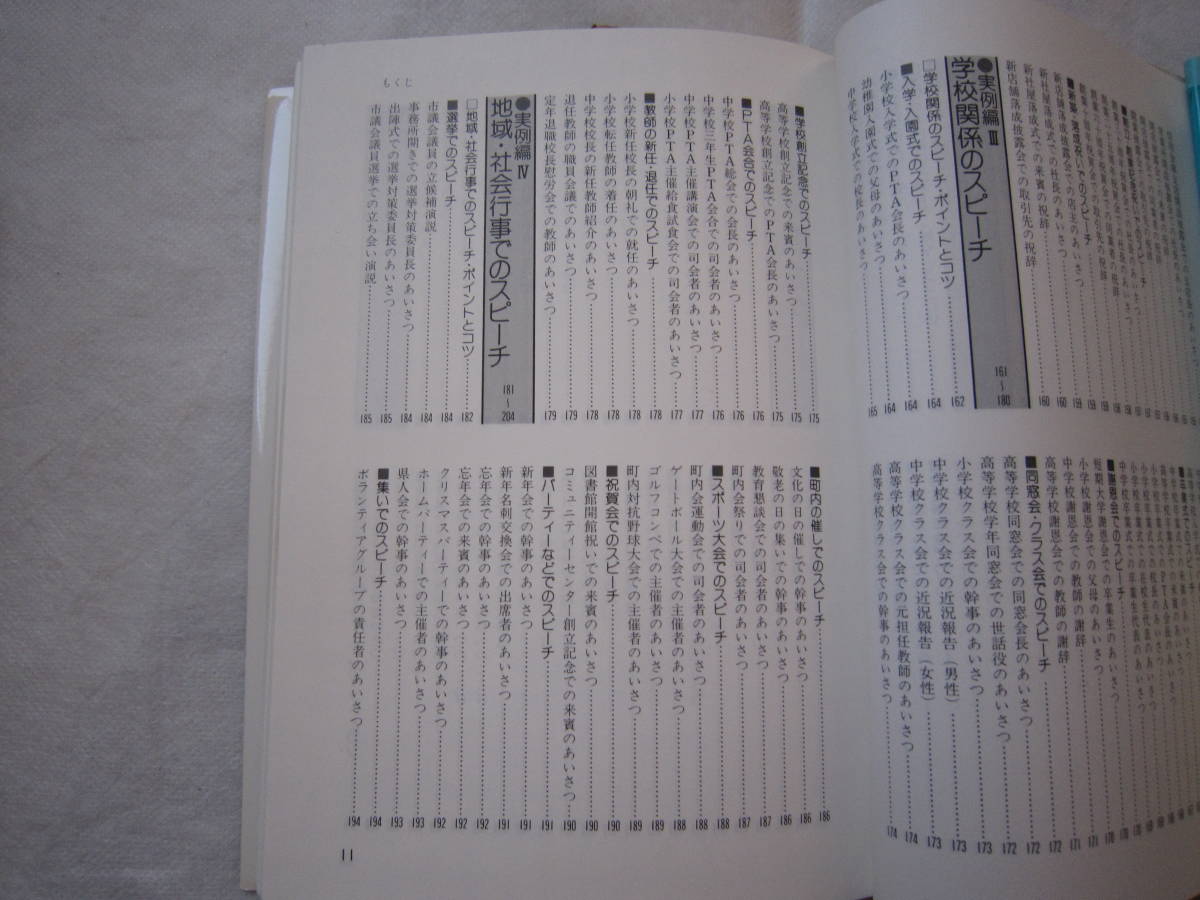 ■新築・落成祝いでのスピーチ
新店舗落成披露会での店主のあいさつ 159
新社屋落成式での社長のあいさつ 159
新社屋落成式での来賓の祝辞 160
新店舗落成披露会での取引先の祝辞 160
●実例編Ⅲ
学校関係のスピーチ 161〜180
□学校関係のスピーチ・ポイントとコツ 162
■入学・入園式でのスピーチ 164
小学校入学式でのPTA会長のあいさつ 164
幼稚園入園式での父母のあいさつ 164
中学校入学式での校長のあいさつ 165
■謝恩会でのスピーチ
短期大学謝恩会での卒業生のあいさつ
小学校謝恩会での父母のあいさつ 171
中学校謝恩会での教師の謝辞 171
高等学校謝恩会での教師の謝辞 172
■同窓会・クラス会でのスピーチ 172
高等学校同窓会での同窓会長のあいさつ 172
高等学校学年同窓会での世話役のあいさつ 172
小学校クラス会での幹事のあいさつ 173
中学校クラス会での近況報告（男性） 173
中学校クラス会での近況報告（女性） 173
高等学校クラス会での元担任教師のあいさつ 174
高等学校クラス会での幹事のあいさつ 174
もくじ
■学校創立記念でのスピーチ 175
高等学校創立記念での来賓のあいさつ 175
高等学校創立記念でのPTA会長のあいさつ 175
■PTA会合でのスピーチ 176
中学校PTA総会での会長のあいさつ 176
中学校三年生PTA会合での司会者のあいさつ 176
中学校PTA主催講演会での司会者のあいさつ 177
小学校PTA主催給食試食会での司会者のあいさつ 177
■教師の新任・退任でのスピーチ 178
小学校新任校長の朝礼での就任のあいさつ 178
小学校転任教師の着任のあいさつ 178
中学校校長の新任教師紹介のあいさつ 178
退任教師の職員会議でのあいさつ 179
定年退職校長慰労会での教師のあいさつ 179
●実例編Ⅳ
地域・社会行事でのスピーチ 181〜204
□地域・社会行事でのスピーチ・ポイントとコツ 182
■選挙でのスピーチ 184
市議会議員の立候補演説 184
事務所開きでの選挙対策委員長のあいさつ 184
出陣式での選挙対策委員長のあいさつ 185
市議会議員選挙での立ち会い演説 185
■町内の催しでのスピーチ 186
文化の日の催しでの幹事のあいさつ 186
敬老の日の集いでの幹事のあいさつ 186
教育懇談会での司会者のあいさつ 187
町内会祭りでの司会者のあいさつ 187
■スポーツ大会でのスピーチ 188
町内会運動会での司会者のあいさつ 188
ゲートボール大会での主催者のあいさつ 188
ゴルフコンペでの主催者のあいさつ 189
町内対抗野球大会での主催者のあいさつ 189
■祝賀会でのスピーチ 190
図書館開館祝いでの来賓のあいさつ 190
コミュニティーセンター創立記念での来賓のあいさつ 190
■パーティーなどでのスピーチ 191
新年会での幹事のあいさつ 191
新年名刺交換会での出席者のあいさつ 191
忘年会での来賓のあいさつ 192
忘年会での幹事のあいさつ 192
クリスマスパーティーでの幹事のあいさつ 192
ホームパーティーでの主催者のあいさつ 193
県人会での幹事のあいさつ 193
■集いでのスピーチ 194
ボランティアグループの責任者のあいさつ 194
11